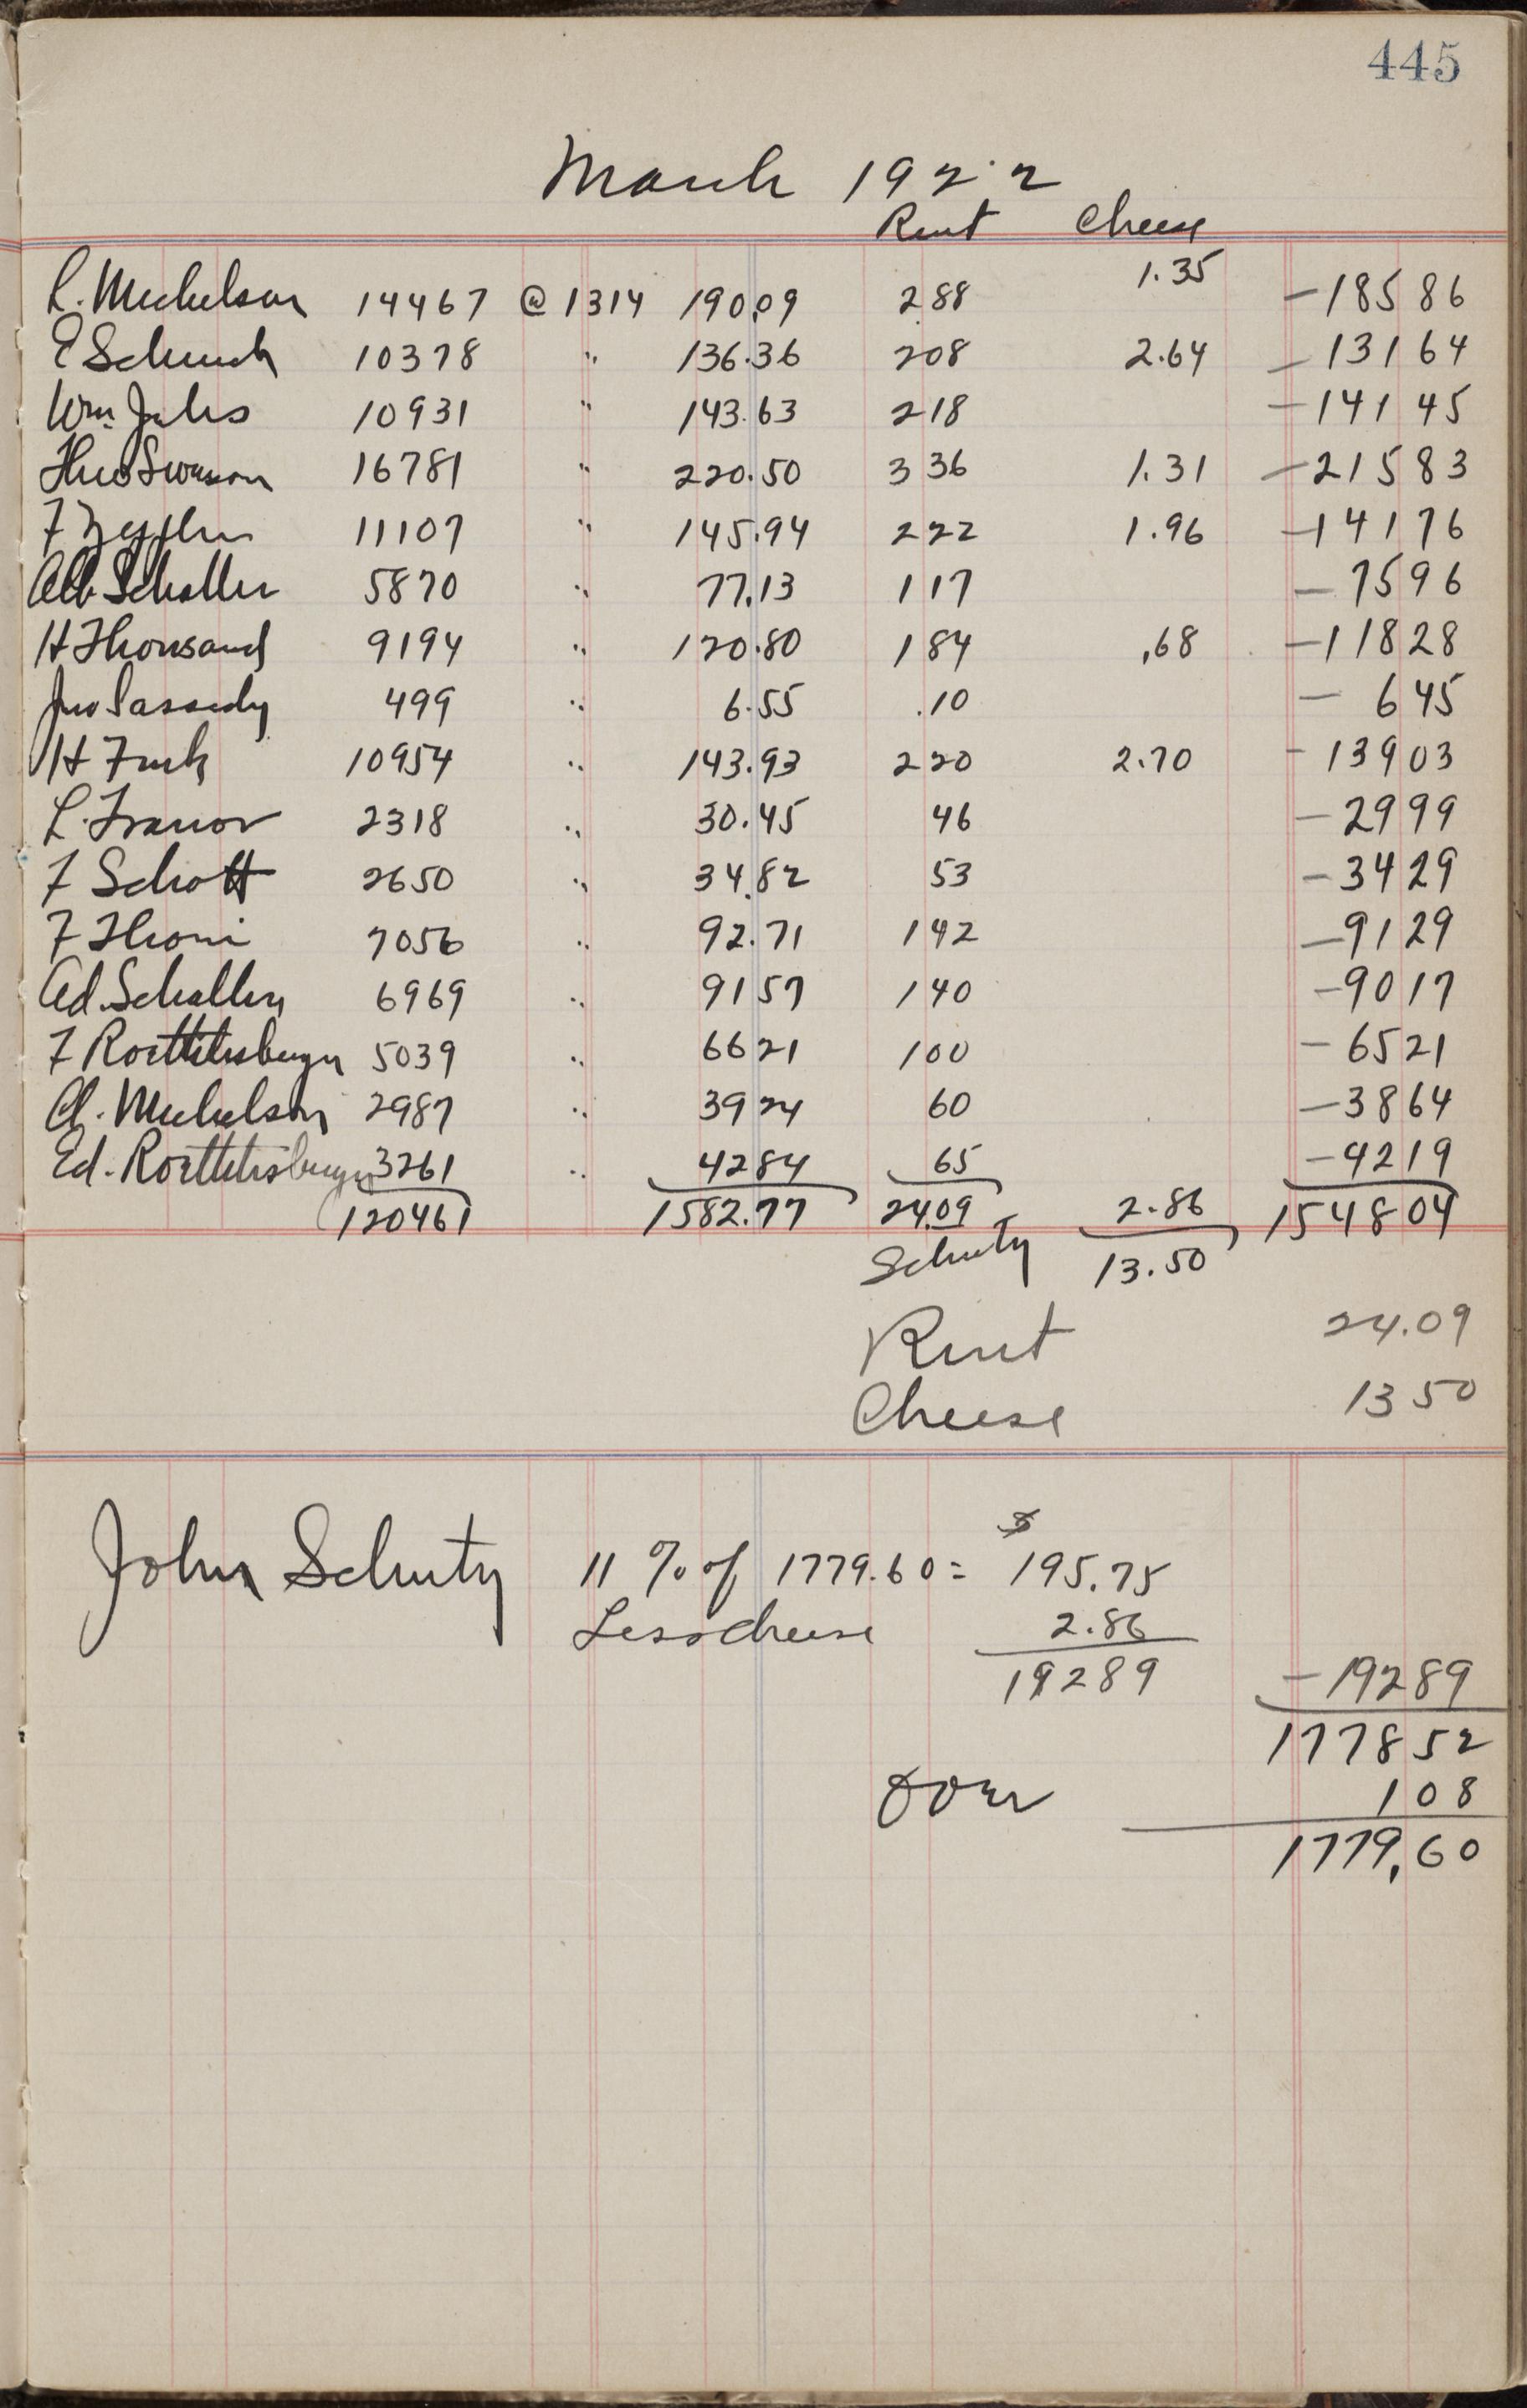 445
March 1922
Rent Cheese
L. Michelson 14467 @ 1314 190.09 288 1.35 - 185 86
E Schuch 10378 " 136.36 208 2.64 - 131 64
Wm. Jules 10931 " 143.63 218 - 141 45
Theo Swanson 16781 " 220.50 336 1.31 - 215 83
F 11107 " 145.94 222 1.96 - 141 76
Alb. Schaller 5870 " 77.13 117 - 75 96
H Thousand 9194 " 120.80 184 .68 - 118 28
Jno Cassidy 499 " 6.55 .10 - 6 45
H 10954 " 143.93 220 2.70 - 139 03
L. 2318 " 30.45 46 - 29 99
F Schott 2650 " 34.82 53 - 34 29
F Thoni 7056 " 92.71 142 - 91 29
Ad. Schaller 6969 " 91 57 140 - 90 17
F 5039 " 66 21 100 - 65 21
Cl. Michelson 2987 " 39 24 60 - 38 64
Ed. 3261 " 42 84 65 - 42 19
120461 1582.77 24.09 2.86 1548 04
Schuty 13.50
Rent 24.09
Cheese 13 50
John Schuty 11 % of 1779.60 = $ 195.75
Less cheese 2.86
192 89 - 192 89
1778 52
Over 1 08
1779.60